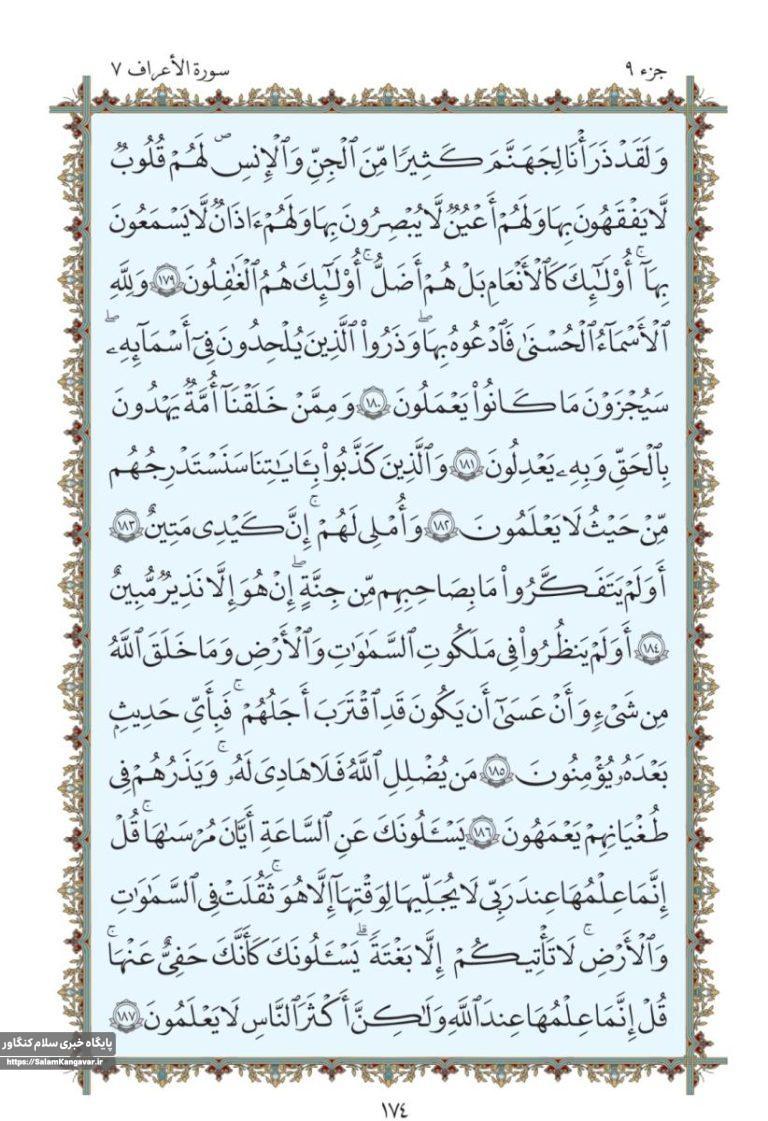 جزء ٩
سورة الأعراف ٧
وَلَقَدْ ذَرَأْنَا لِجَهَنَّمَ كَثِيرًا مِّنَ ٱلْجِنِّ وَٱلْإِنسِ ۖ لَهُمْ قُلُوبٌ
لَّا يَفْقَهُونَ بِهَا وَلَهُمْ أَعْيُنٌ لَّا يُبْصِرُونَ بِهَا وَلَهُمْ ءَاذَانٌ لَّا يَسْمَعُونَ
بِهَآ ۚ أُو۟لَـٰٓئِكَ كَٱلْأَنْعَـٰمِ بَلْ هُمْ أَضَلُّ ۚ أُو۟لَـٰٓئِكَ هُمُ ٱلْغَـٰفِلُونَ ١٧٩ وَلِلَّهِ
ٱلْأَسْمَآءُ ٱلْحُسْنَىٰ فَٱدْعُوهُ بِهَا ۖ وَذَرُوا۟ ٱلَّذِينَ يُلْحِدُونَ فِىٓ أَسْمَـٰٓئِهِۦ ۚ
سَيُجْزَوْنَ مَا كَانُوا۟ يَعْمَلُونَ ١٨٠ وَمِمَّنْ خَلَقْنَآ أُمَّةٌ يَهْدُونَ
بِٱلْحَقِّ وَبِهِۦ يَعْدِلُونَ ١٨١ وَٱلَّذِينَ كَذَّبُوا۟ بِـَٔايَـٰتِنَا سَنَسْتَدْرِجُهُم
مِّنْ حَيْثُ لَا يَعْلَمُونَ ١٨٢ وَأُمْلِى لَهُمْ ۚ إِنَّ كَيْدِى مَتِينٌ ١٨٣
أَوَلَمْ يَتَفَكَّرُوا۟ ۗ مَا بِصَاحِبِهِم مِّن جِنَّةٍ ۚ إِنْ هُوَ إِلَّا نَذِيرٌ مُّبِينٌ
١٨٤ أَوَلَمْ يَنظُرُوا۟ فِى مَلَكُوتِ ٱلسَّمَـٰوَٰتِ وَٱلْأَرْضِ وَمَا خَلَقَ ٱللَّهُ
مِن شَىْءٍ وَأَنْ عَسَىٰٓ أَن يَكُونَ قَدِ ٱقْتَرَبَ أَجَلُهُمْ ۖ فَبِأَىِّ حَدِيثٍۭ
بَعْدَهُۥ يُؤْمِنُونَ ١٨٥ مَن يُضْلِلِ ٱللَّهُ فَلَا هَادِىَ لَهُۥ ۚ وَيَذَرُهُمْ فِى
طُغْيَـٰنِهِمْ يَعْمَهُونَ ١٨٦ يَسْـَٔلُونَكَ عَنِ ٱلسَّاعَةِ أَيَّانَ مُرْسَىٰهَا ۖ قُلْ
إِنَّمَا عِلْمُهَا عِندَ رَبِّى ۖ لَا يُجَلِّيهَا لِوَقْتِهَآ إِلَّا هُوَ ۚ ثَقُلَتْ فِى ٱلسَّمَـٰوَٰتِ
وَٱلْأَرْضِ ۚ لَا تَأْتِيكُمْ إِلَّا بَغْتَةً ۗ يَسْـَٔلُونَكَ كَأَنَّكَ حَفِىٌّ عَنْهَا ۖ
قُلْ إِنَّمَا عِلْمُهَا عِندَ ٱللَّهِ وَلَـٰكِنَّ أَكْثَرَ ٱلنَّاسِ لَا يَعْلَمُونَ ١٨٧
پایگاه خبری سلام کنگاور
https://SalamKangavar.ir
١٧٤